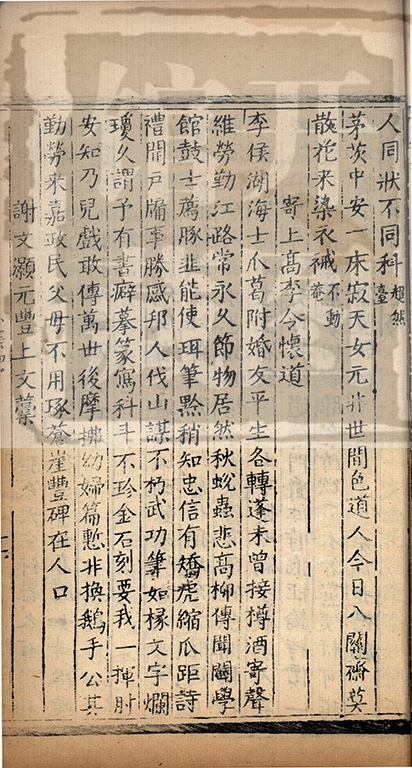 人同狀不同科超然臺
茅茨中安一床寂天女元非世間色道人今日八關齋莫
散花来染衣裓不動菴
寄上髙李令懐道
李侯湖海士瓜葛附婚友平生各轉蓬未曾接樽酒寄聲
維勞勤江路常永久節物居然秋蛻蟲悲髙柳傳聞闢學
館鼓士薦豚韭能使珥筆黥稍知忠信有矯虎縮爪距詩
禮開戸牖事勝感邦人伐山謀不朽武功筆如椽文字爛
瓊久謂予有書癖摹篆寫科斗不珍金石刻要我一揮肘
安知乃兒戲敢傳萬世後摩挲幼婦篇慙非換鵝手公其
勤勞来嘉政民父母不用琢蒼崖豐碑在人口
謝文灝元豐上文藁